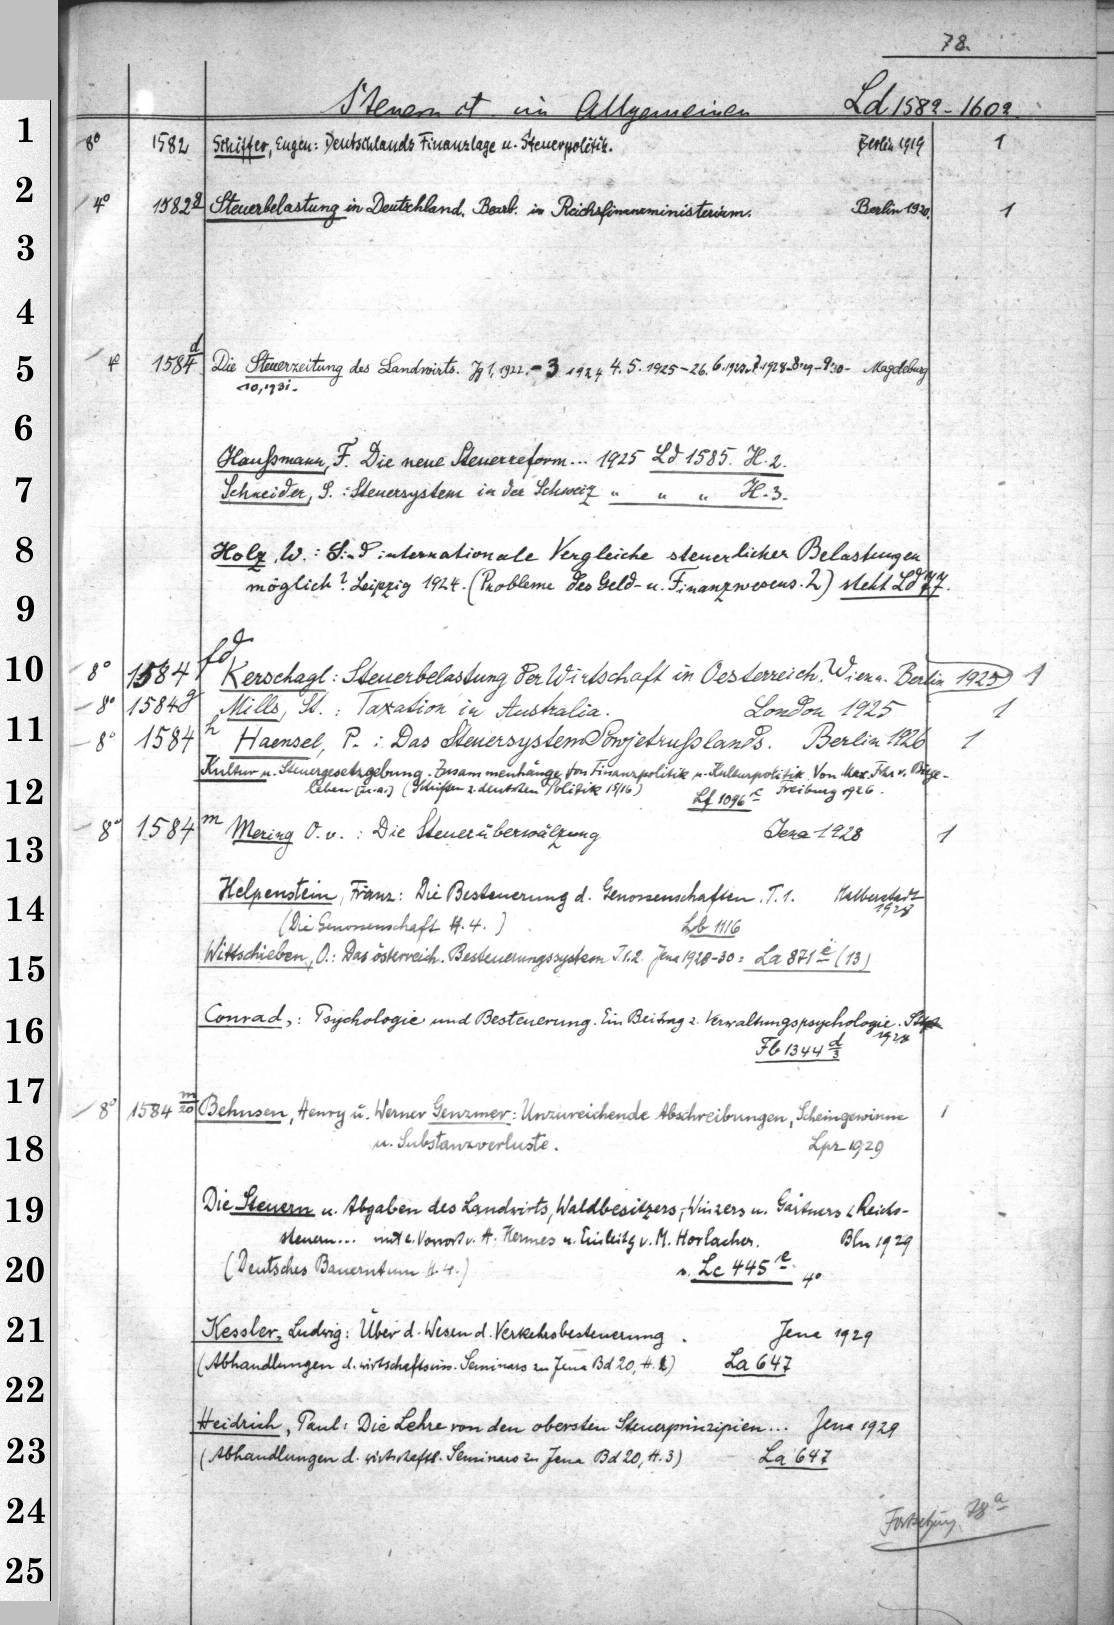 78.
Steuern im Allgemeinen Ld 1582 - 1602.
1 8° 1582 Schiffer, Eugen: Deutschlands Finanzlage u. Steuerpolitik. Berlin 1919 1
2 4° 1582a Steuerbelastung in Deutschland. Bearb. im Reichsfinanzministerium. Berlin 1920. 1
3
4
5 4° 1584 d/4 Die Steuerzeitung des Landwirts. Jg 1, 1922. - 3 1924 4. 5. 1925 - 26. 6. 1927. 7. 1928. 8. 29 - 9. 30 - Magdeburg
10, 1931.
6
Haußmann, F. Die neue Steuerreform... 1925 Ld 1585. H. 2.
7 Schneider, S.: Steuersystem in der Schweiz " " " H. 3.
8 Holz, W.: Sind internationale Vergleiche steuerlicher Belastungen
9 möglich? Leipzig 1924. (Probleme des Geld- u. Finanzwesens. 2) steht Ld 77.
10 8° 1584 fd Kerschagl: Steuerbelastung der Wirtschaft in Oesterreich. Wien u. Berlin 1925 1
8° 1584 g Mills, St.: Taxation in Australia. London 1925 1
11 8° 1584 h Haensel, P.: Das Steuersystem Sowjetrußlands. Berlin 1926 1
Kultur u. Steuergesetzgebung. Zusammenhänge von Finanzpolitik u. Kulturpolitik. Von Max. Fhr. v. Biege-
12 leben (u. a.) (Schriften z. deutschen Politik 15/16) Lf 1096 e Freiburg 1926.
13 8° 1584 m Mering O. v.: Die Steuerüberwälzung Jena 1928 1
14 Helpenstein, Franz: Die Besteuerung d. Genossenschaften. T. 1. Halberstadt 1928
(Die Genossenschaft H. 4.) Lb 1116
15 Wittschieben, O.: Das österreich. Besteuerungssystem T. 1. 2 Jena 1928-30: La 871 e (13)
16 Conrad,: Psychologie und Besteuerung. Ein Beitrag z. Verwaltungspsychologie. Stgt 1928
Fb 1344 d/3
17 8° 1584 m/20 Behnsen, Henry u. Werner Genzmer: Unzureichende Abschreibungen, Scheingewinne 1
18 u. Substanzverluste. Lpz 1929
19 Die Steuern u. Abgaben des Landwirts, Waldbesitzers, Winzers u. Gärtners Reichs-
steuern... mit e. Vorwort v. A. Hermes u. Einleitg v. M. Horlacher. Bln 1929
20 (Deutsches Bauerntum H. 4.) s. Lc 445 e. 4°
21 Kessler, Ludwig: Über d. Wesen d. Verkehrsbesteuerung. Jena 1929
(Abhandlungen d. wirtschaftswiss. Seminars zu Jena Bd 20, H. 1) La 647
22
Heidrich, Paul: Die Lehre von den obersten Steuerprinzipien... Jena 1929
23 (Abhandlungen d. wirtschaftl. Seminars zu Jena Bd 20, H. 3) La 647
24 Fortsetzung 78a
25